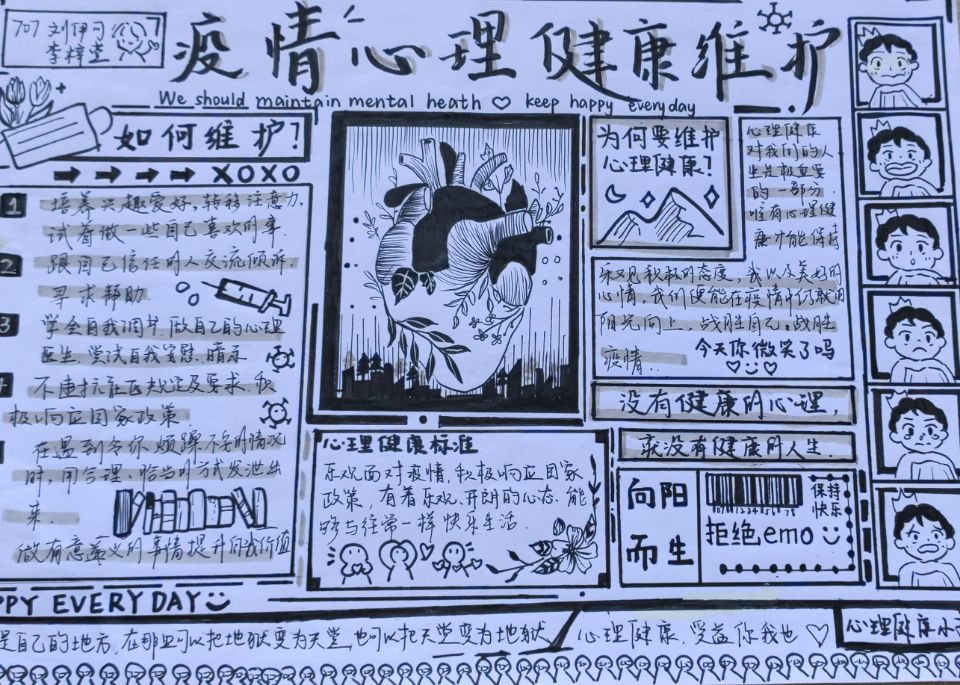 707 刘伊可
李梓萱
疫情心理健康维护
We should maintain mental heath ♡ keep happy everyday
如何维护?
XOXO
1 培养兴趣爱好,转移注意力,
试着做一些自己喜欢的事.
2 跟自己信任的人交流倾诉,
寻求帮助.
3 学会自我调节.做自己的心理
医生.尝试自我安慰.暗示
不违抗社区规定及要求.积
极响应国家政策
在遇到令你烦躁不安的情况
时,用合理、恰当的方式发泄出
来.
做有意义的事情提升自我价值
为何要维护
心理健康?
心理健康
对我们的人
生是极重要
的一部分.
唯有心理健
康才能保持
乐观积极的态度,以及美好的
心情,我们便能在疫情中仍敢
阳光向上,战胜自己,战胜
疫情..
今天你微笑了吗
没有健康的心理,
就没有健康的人生.
心理健康标准
乐观面对疫情,积极响应国家
政策,有着乐观、开朗的心态.能
够与往常一样快乐生活.
向阳
而生
保持
快乐
拒绝emo
PPY EVERYDAY
是自己的地方,在那里可以把地狱变为天堂,也可以把天堂变为地狱
心理健康,受益你我他 ♡
心理健康小